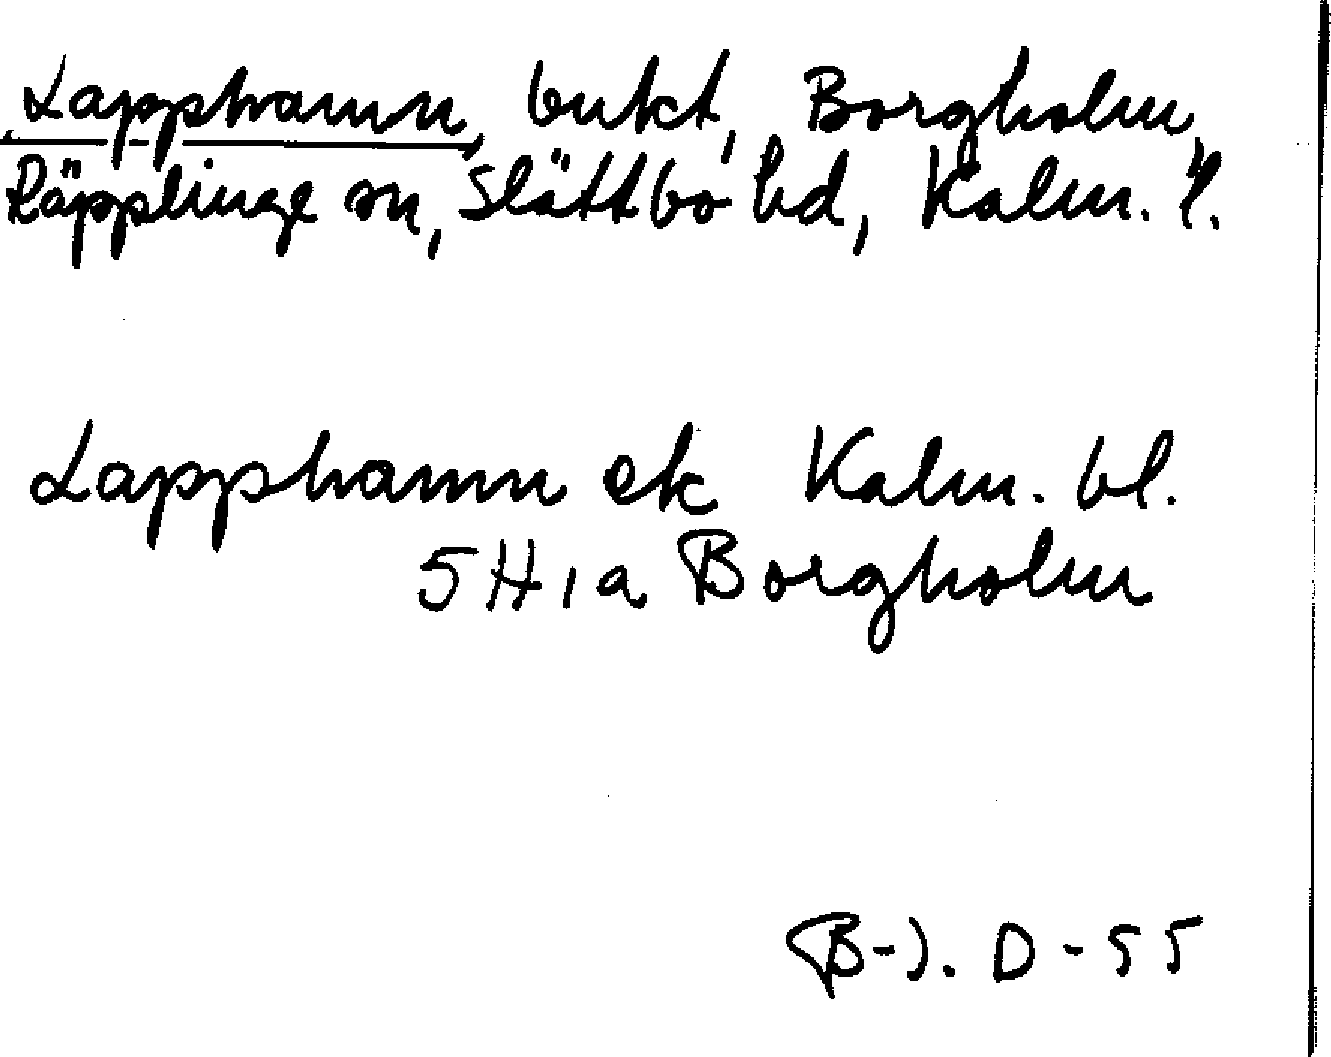 Lapphamn, bukt, Borgholm,
Räpplinge sn, Slättbo hd, Kalm. l.
Lapphamn ek Kalm. bl.
5H1a Borgholm
B-J. D-55